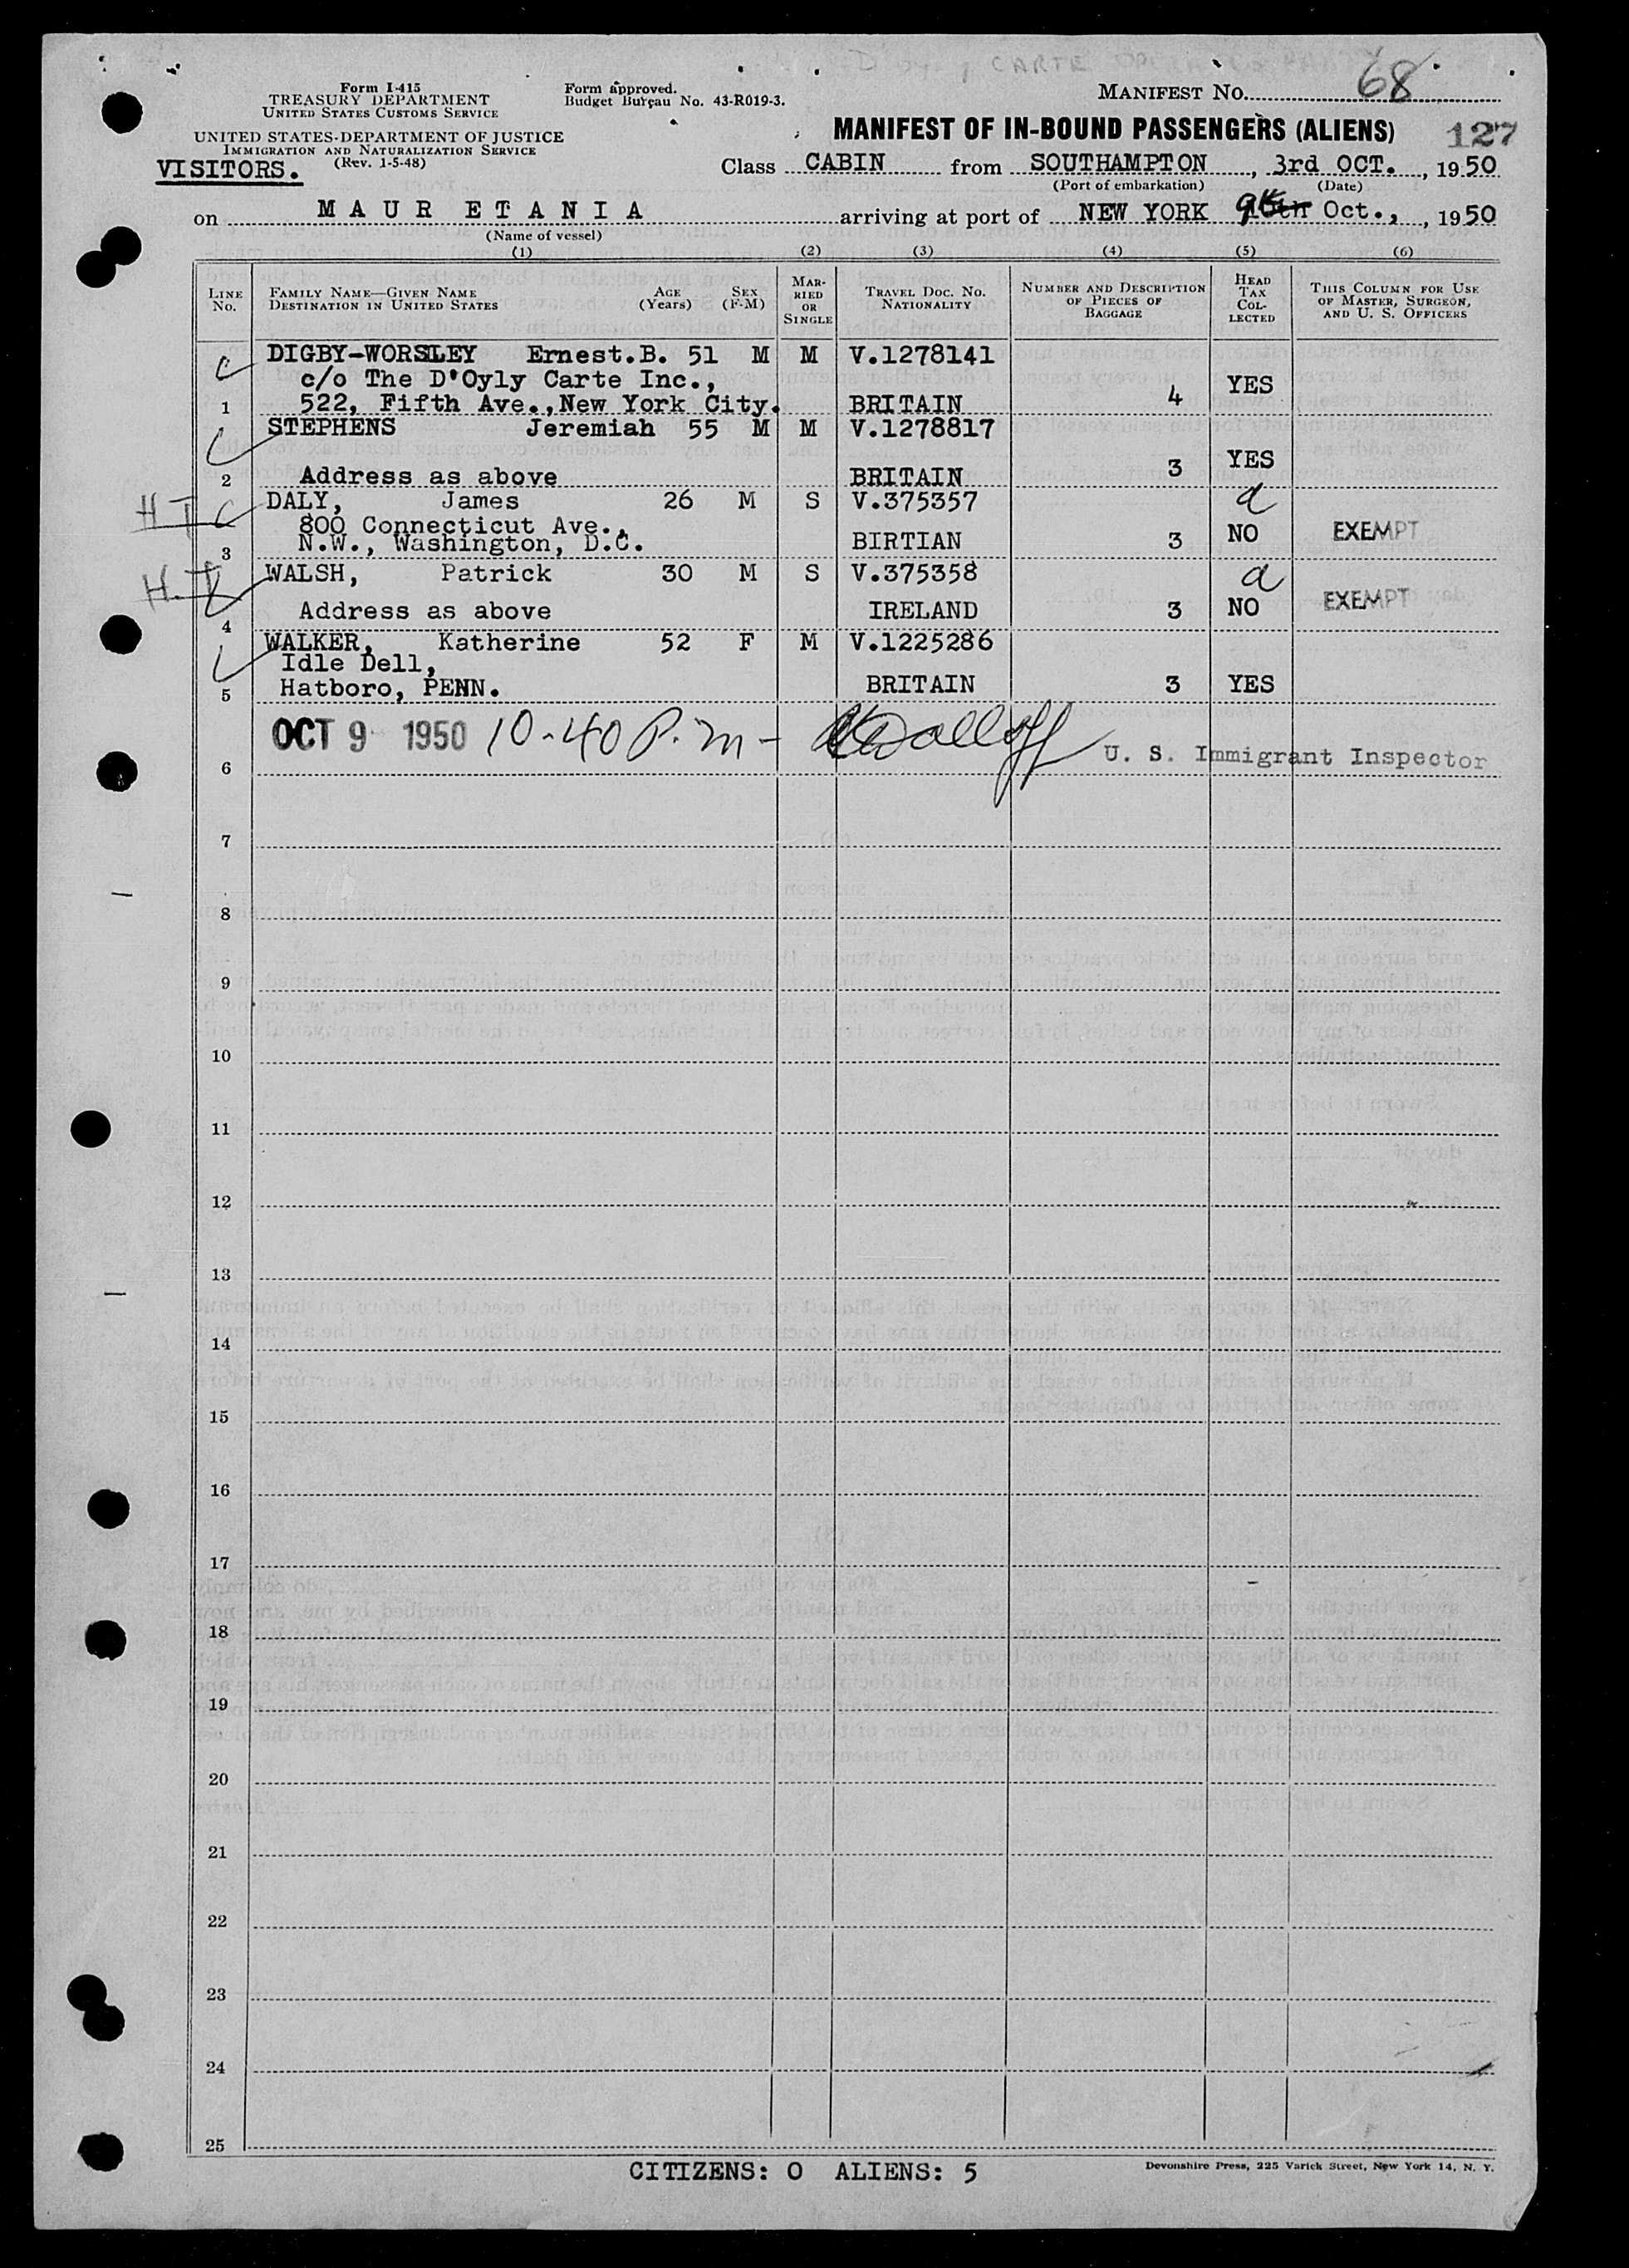 CARTE
Form I-415
TREASURY DEPARTMENT
UNITED STATES CUSTOMS SERVICE
Form approved.
Budget Bureau No. 43-R019-3.
MANIFEST NO. 68
UNITED STATES DEPARTMENT OF JUSTICE
IMMIGRATION AND NATURALIZATION SERVICE
(Rev. 1-5-48)
MANIFEST OF IN-BOUND PASSENGERS (ALIENS) 127
VISITORS.
Class CABIN from SOUTHAMPTON, 3rd OCT., 1950
(Port of embarkation) (Date)
on MAURETANIA arriving at port of NEW YORK 9th Oct., 1950
(Name of vessel)
(1) (2) (3) (4) (5) (6)
LINE No. FAMILY NAME—GIVEN NAME DESTINATION IN UNITED STATES AGE (Years) SEX (F-M) MARRIED OR SINGLE TRAVEL DOC. NO. NATIONALITY NUMBER AND DESCRIPTION OF PIECES OF BAGGAGE HEAD TAX COLLECTED THIS COLUMN FOR USE OF MASTER, SURGEON, AND U. S. OFFICERS
DIGBY-WORSLEY Ernest.B. 51 M M V.1278141
c/o The D'Oyly Carte Inc., 4 YES
1 522, Fifth Ave.,New York City. BRITAIN
STEPHENS Jeremiah 55 M M V.1278817
2 Address as above BRITAIN 3 YES
H T DALY, James 26 M S V.375357 a
800 Connecticut Ave.,
3 N.W., Washington, D.C. BIRTIAN 3 NO EXEMPT
H.T WALSH, Patrick 30 M S V.375358 a
4 Address as above IRELAND 3 NO EXEMPT
WALKER, Katherine 52 F M V.1225286
Idle Dell,
5 Hatboro, PENN. BRITAIN 3 YES
OCT 9 1950 10-40 P.m-
6 U. S. Immigrant Inspector
7
8
9
10
11
12
13
14
15
16
17
18
19
20
21
22
23
24
25
CITIZENS: O ALIENS: 5
Devonshire Press, 225 Varick Street, New York 14, N. Y.